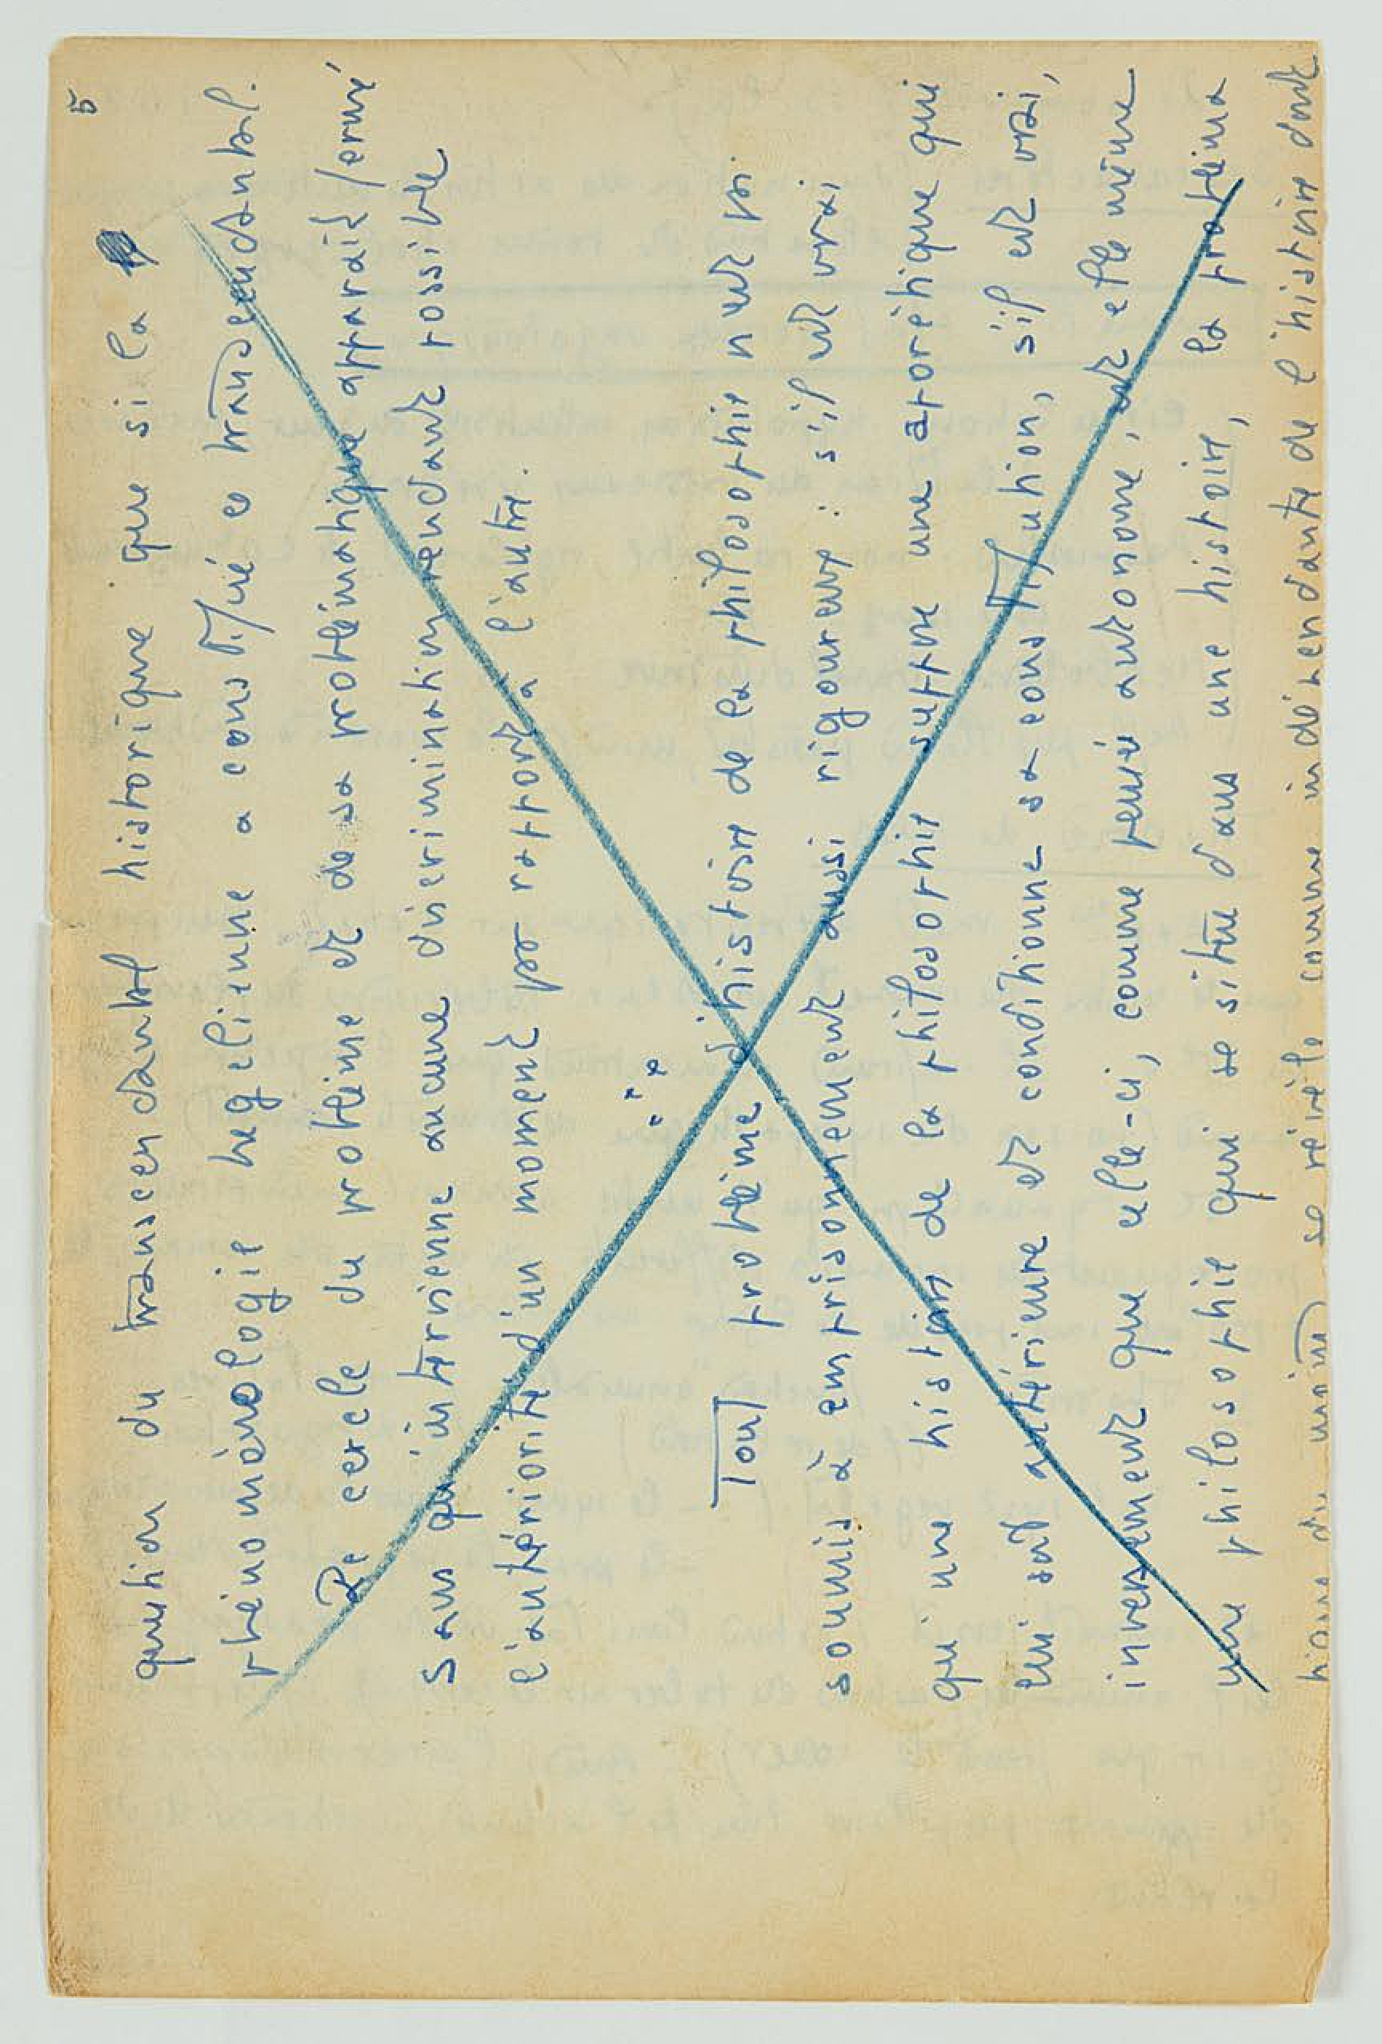 5
question du transcendantal historique que si la
phénoménologie hegelienne a constitué ce transcendantal.
Le cercle du problème et de sa problématique apparaît fermé
sans qu'intervienne aucune discrimination rendant possible
l'antériorité d'un moment par rapport à l'autre.
Tout problème d'histoire de la philosophie est
soumis à emprisonnement aussi rigoureux : s'il est vrai
qu'une histoire de la philosophie suppose une aporétique qui
lui soit antérieure et conditionne sa constitution, s'il est vrai,
inversement que celle-ci, comme pensée autonome, est elle même
une philosophie qui se situe dans une histoire, le problème
du moins se révèle comme indépendante de l'histoire dont